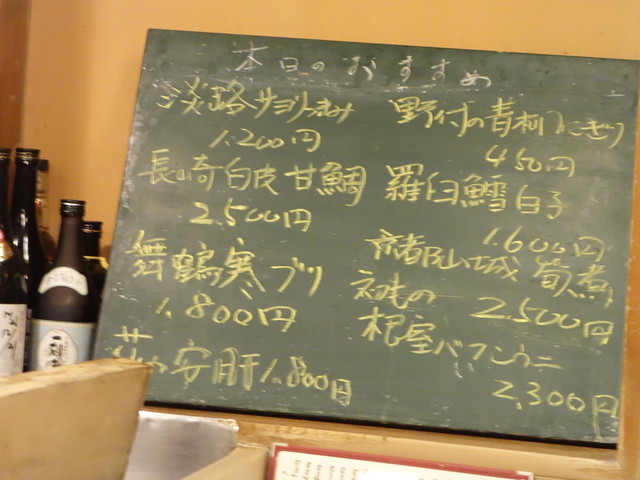 本日のおすすめ
淡路サヨリつまみ
1.200円
長崎白皮甘鯛
2.500円
舞鶴寒ブリ
1.800円
安肝1.800円
野付の青柳にぎり
450円
羅臼鱈白子
1.600円
京都山城筍煮
初もの 2.500円
根室バフンウニ
2.300円